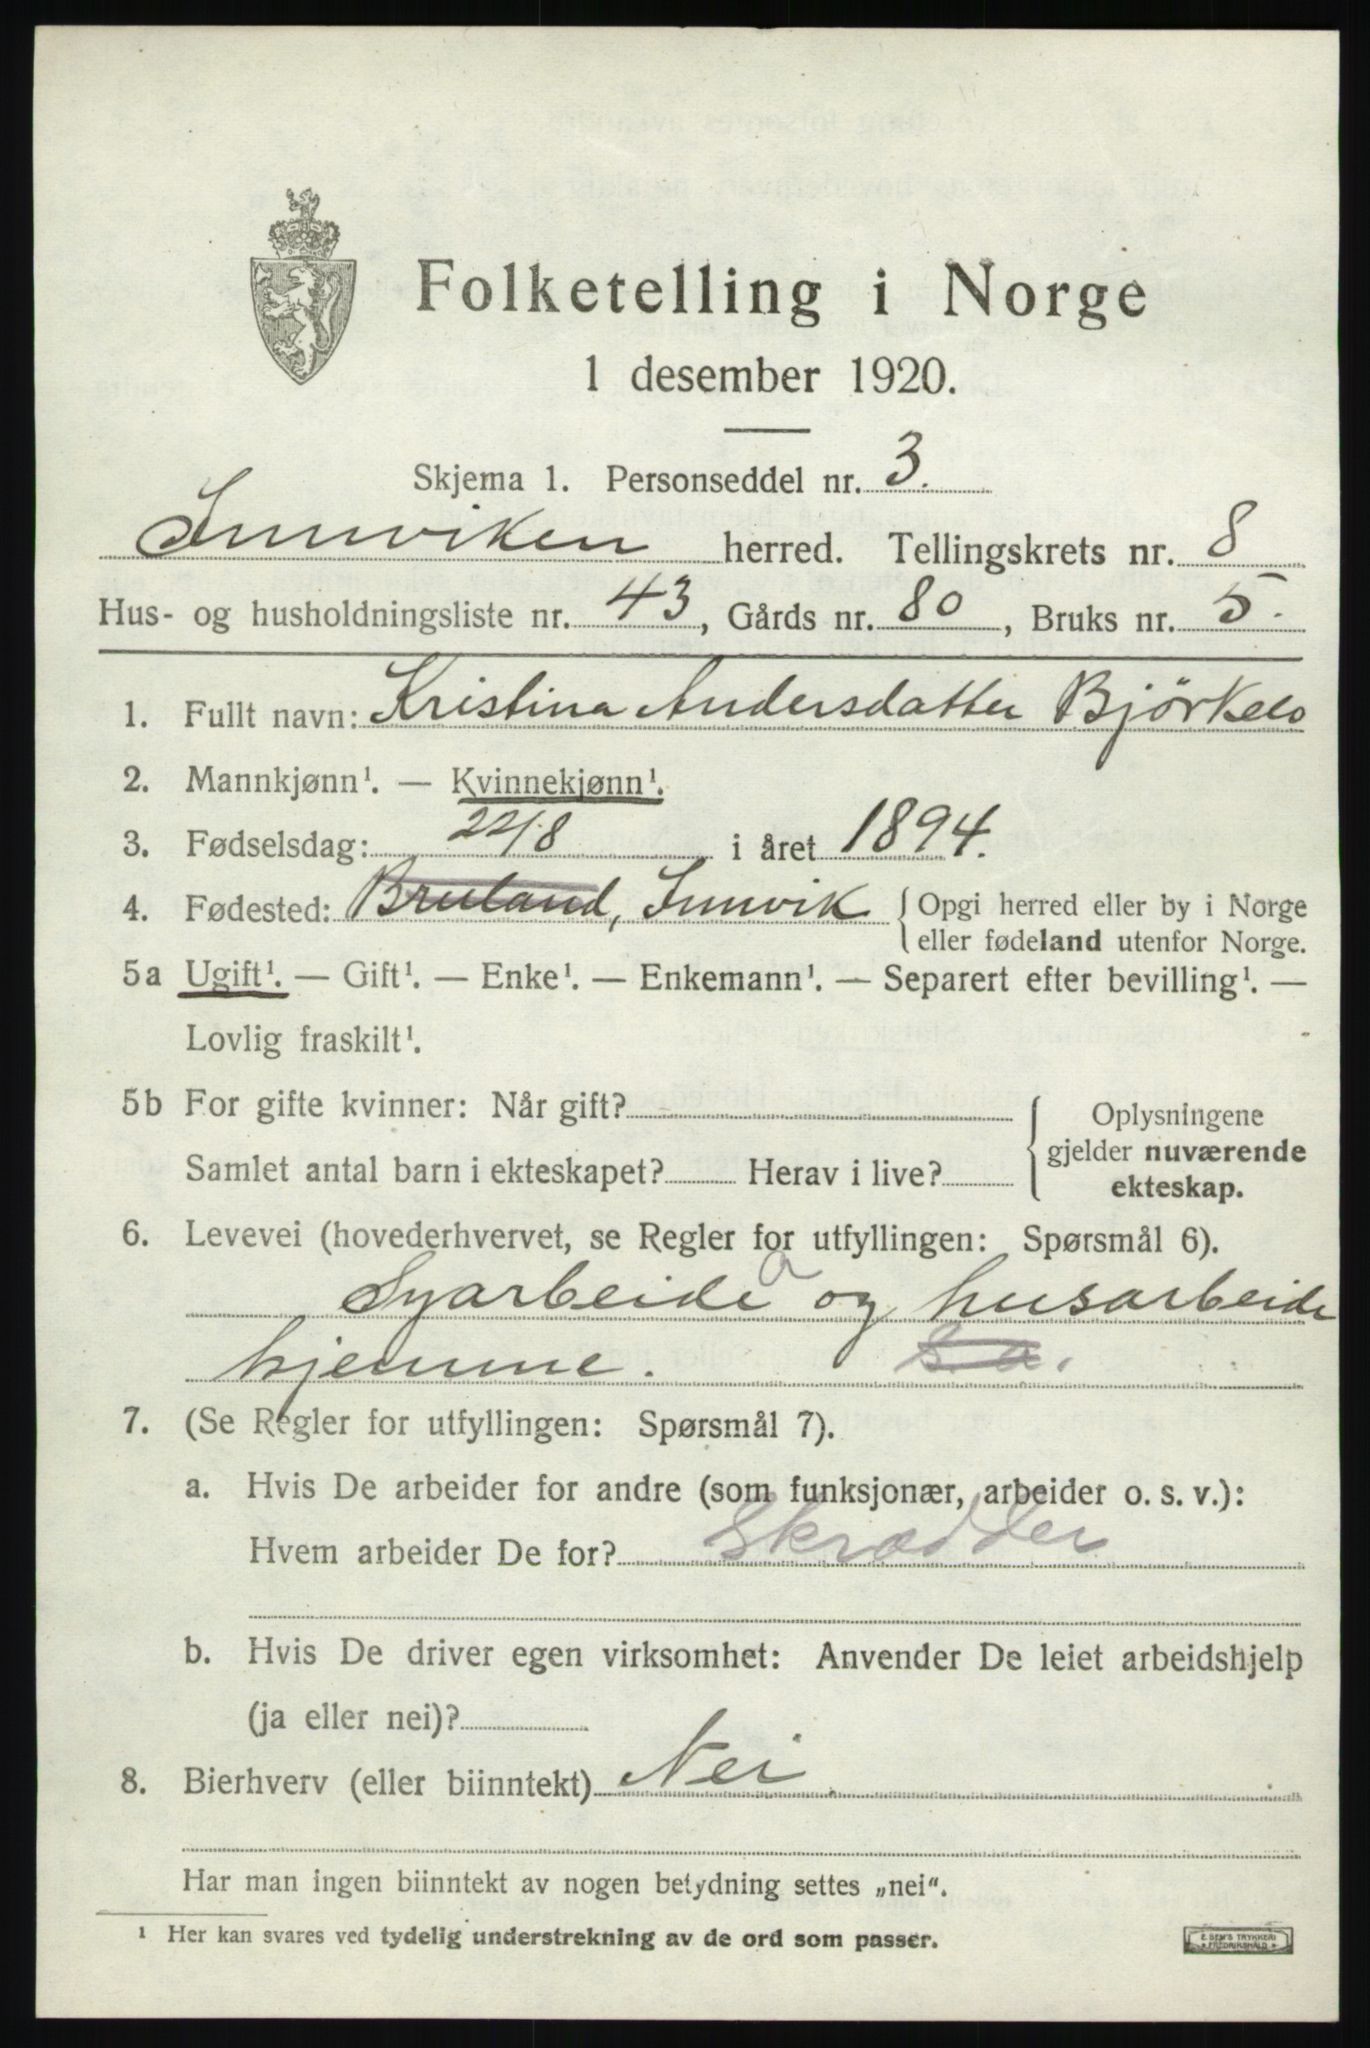 Folketelling i Norge
1 desember 1920.
Skjema 1. Personseddel nr. 3.
Innviken herred. Tellingskrets nr. 8
Hus- og husholdningsliste nr. 43, Gårds nr. 80, Bruks nr. 5.
1. Fullt navn: Kristina Andersdatter Björkelo
2. Mannkjønn¹. — Kvinnekjønn¹.
3. Fødselsdag: 22/8 i året 1894.
4. Fødested: Bruland, Innvik { Opgi herred eller by i Norge
eller fødeland utenfor Norge.
5a Ugift¹. — Gift¹. — Enke¹. — Enkemann¹. — Separert efter bevilling¹. —
Lovlig fraskilt¹.
5b For gifte kvinner: Når gift?
Samlet antal barn i ekteskapet? Herav i live?
Oplysningene
gjelder nuværende
ekteskap.
6. Levevei (hovederhvervet, se Regler for utfyllingen: Spørsmål 6).
a
Syarbeide og husarbeide
hjemme.
7. (Se Regler for utfyllingen: Spørsmål 7).
a. Hvis De arbeider for andre (som funksjonær, arbeider o. s. v.):
Hvem arbeider De for? Skrædder
b. Hvis De driver egen virksomhet: Anvender De leiet arbeidshjelp
(ja eller nei)?
8. Bierhverv (eller biinntekt) Nei.
Har man ingen biinntekt av nogen betydning settes „nei".
¹ Her kan svares ved tydelig understrekning av de ord som passer.
E. SEM'S TRYKKERI
FREDRIKSHALD